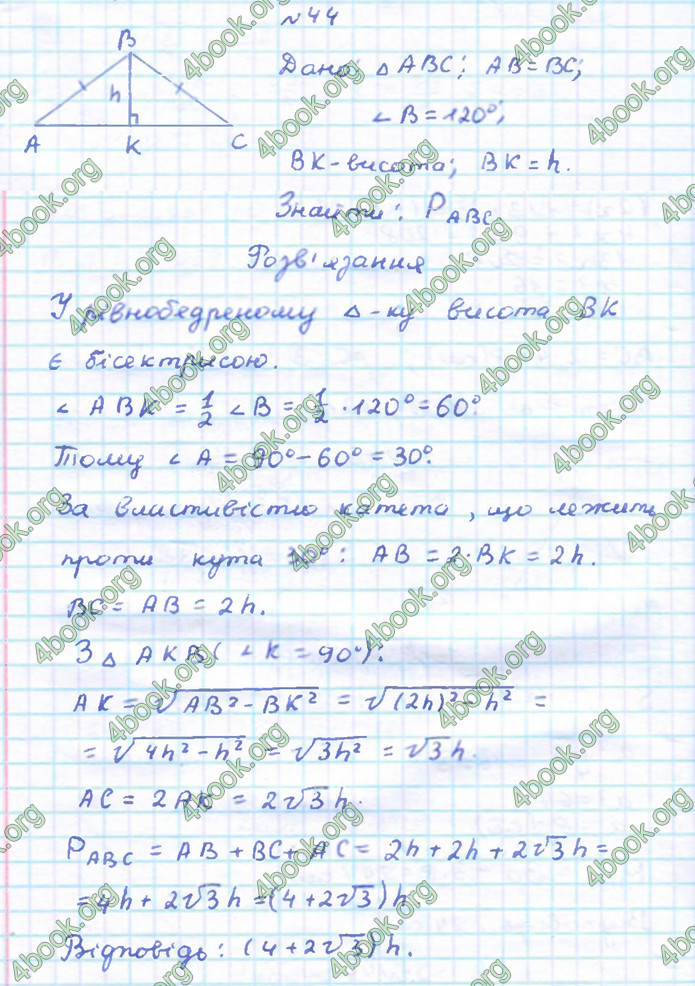 №44
B
Дано: △ ABC; AB = BC;
h
∠B = 120°;
A K C
BK - висота; BK = h.
Знайти: P_ABC
Розв'язання
У рівнобедреному △-ку висота BK
є бісектрисою.
∠ ABK = 1/2 ∠B = 1/2 · 120° = 60°.
Тому ∠A = 90° - 60° = 30°.
За властивістю катета, що лежить
проти кута 30°: AB = 2·BK = 2h.
BC = AB = 2h.
З △ AKB (∠K = 90°):
AK = √(AB² - BK²) = √((2h)² - h²) =
= √(4h² - h²) = √(3h²) = √3 h.
AC = 2AK = 2√3 h.
P_ABC = AB + BC + AC = 2h + 2h + 2√3 h =
= 4h + 2√3 h = (4 + 2√3) h
Відповідь: (4 + 2√3) h.
4book.org